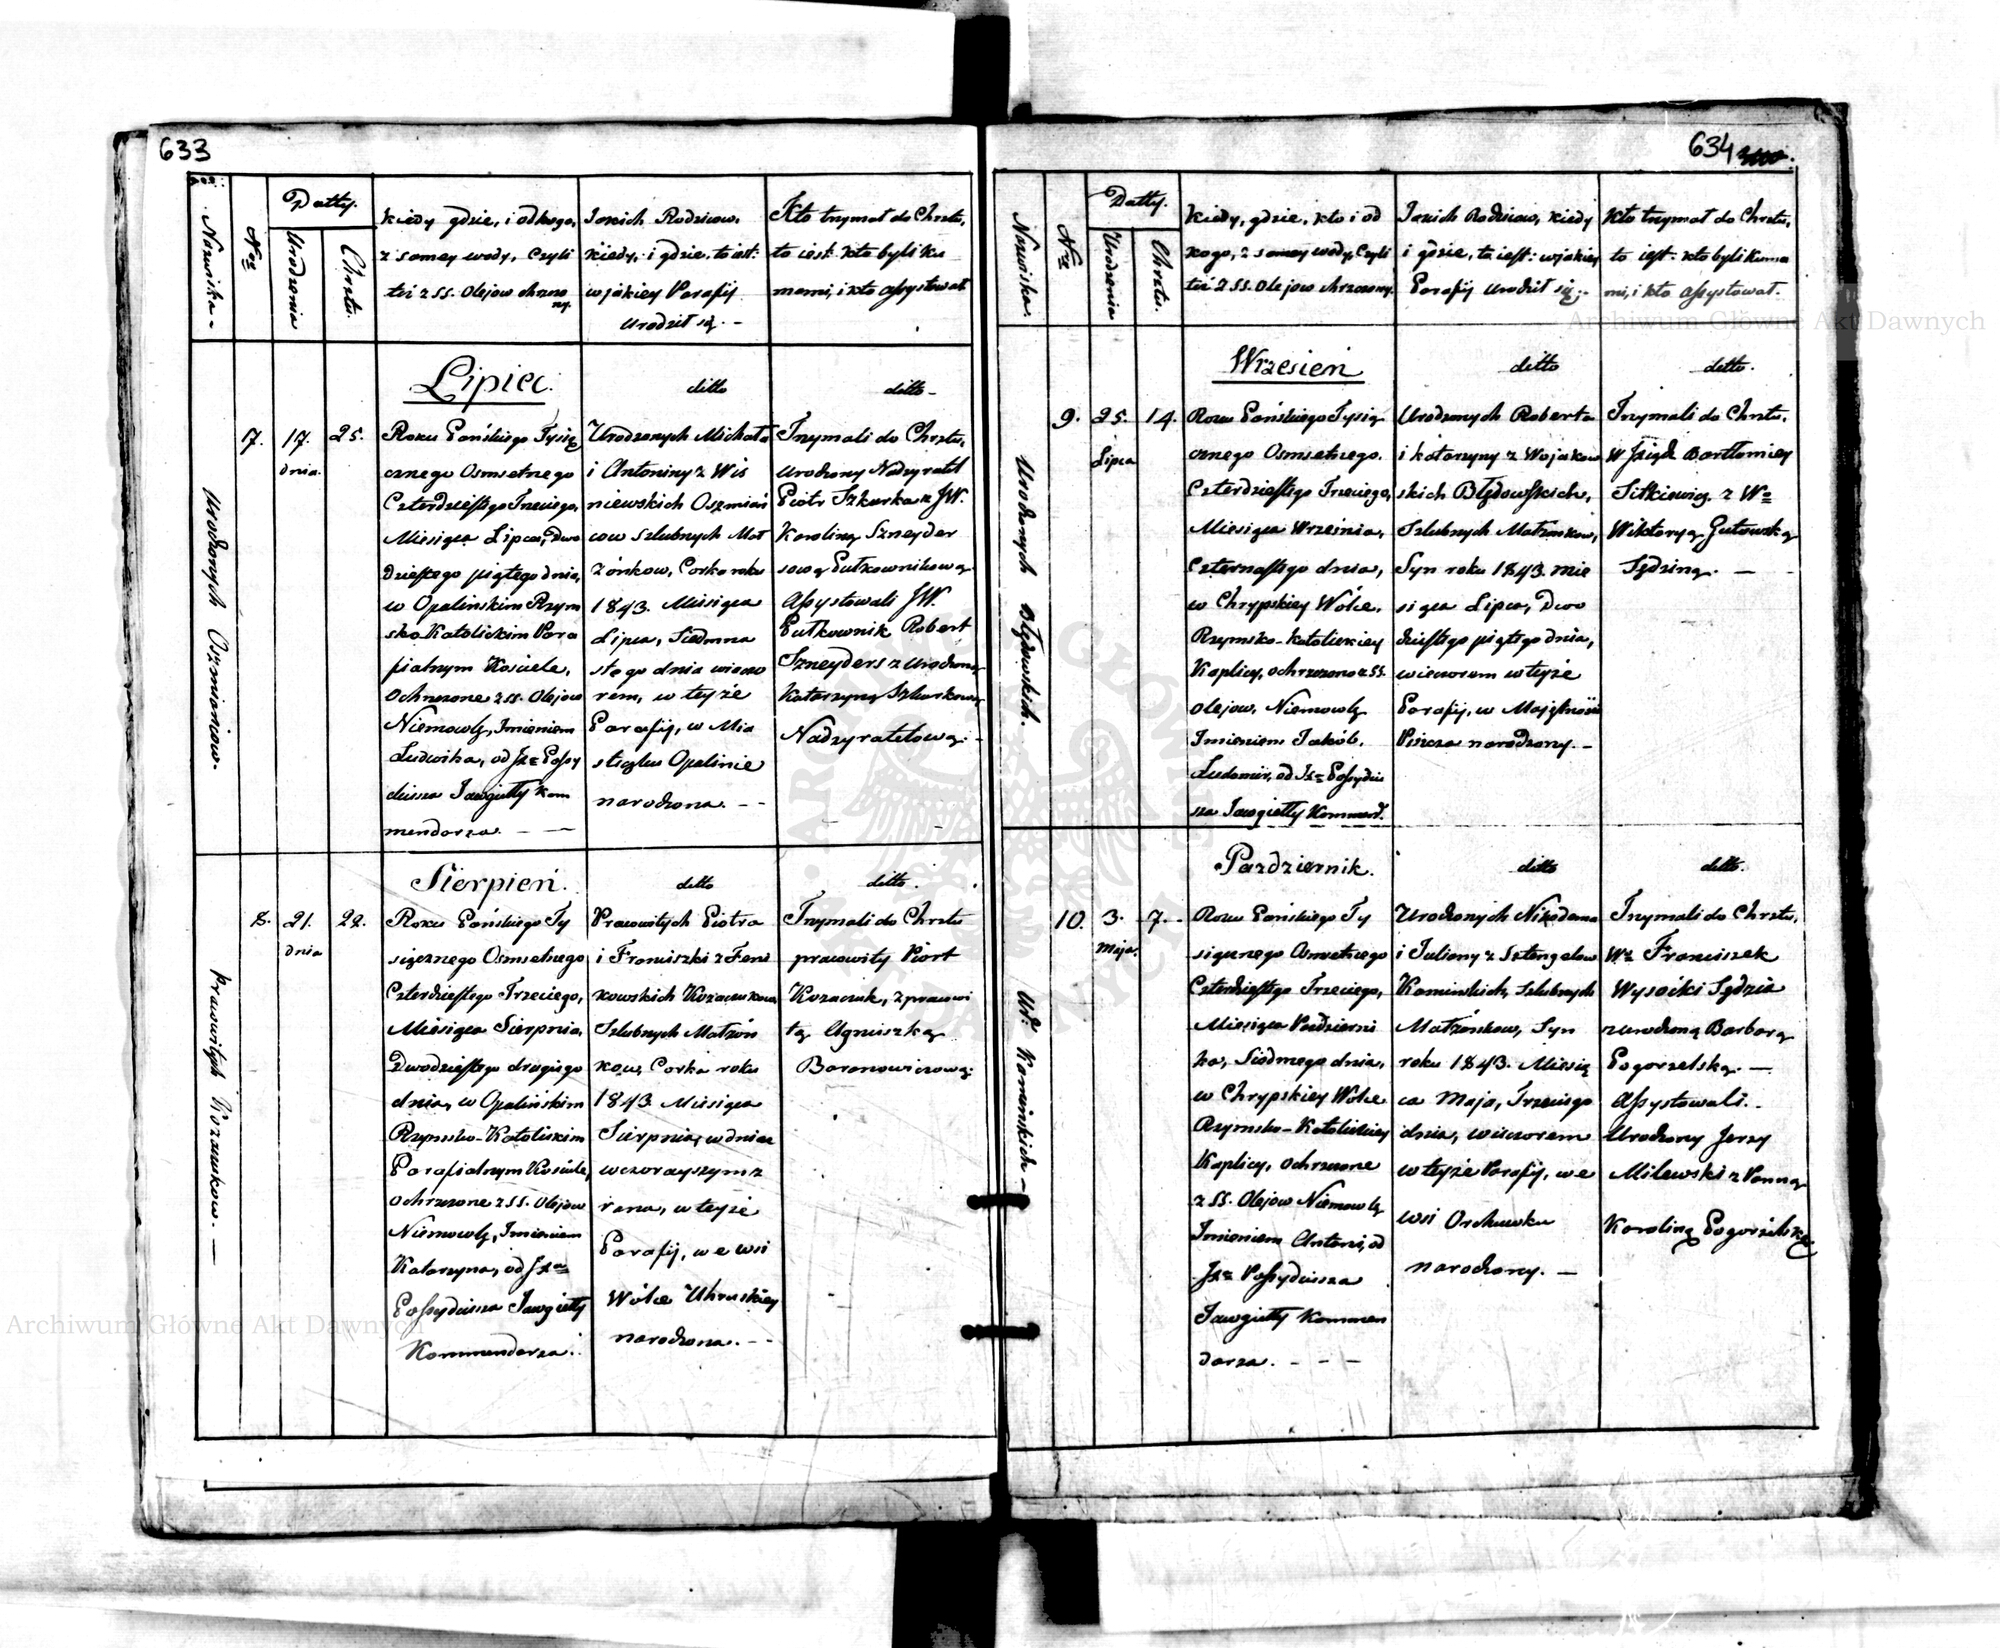 633
Nazwiska
Nro
Datty.
Urodzenia
Chrztu.
kiedy gdzie, i od kogo,
z samey wody, czyli
też z SS. Olejow chrzczo
ny.
Jakich Rodzicow,
kiedy, i gdzie, to iest:
w jakiey Parafij
Urodził się. -
Kto trzymał do Chrztu,
to iest kto byli ku
mami, i kto assystował
Urodzonych Oszmianiow.
7.
17.
dnia.
25.
Lipiec.
Roku Pańskiego Tysią
cznego Osmsetnego
Czterdziestego Trzeciego,
Miesiąca Lipca, Dwu
dziestego piątego dnia,
w Opalinskim Rzym
sko Katolickim Para
fialnym Kościele,
Ochrzczone z SS. Olejow
Niemowlę, Imieniem
Ludwika, od Jx= Possy
diusza Jawgiełły Kom
mendarza. - —
ditto
Urodzonych Michała
i Antoniny z Wis
niewskich Oszmian
cow szlubnych Mał
żonkow, Corka roku
1843. Miesiąca
Lipca, Siedmna
stego dnia wieczo
rem, w teyże
Parafij, w Mia
steczku Opalinie
narodzona. - -
ditto -
Trzymali do Chrztu,
Urodzony Nadzyratel
Piotr Szkurka z JW.
Karoliną Szneyder
sową Pułkownikową
Assystowali JW.
Pułkownik Robert
Szneyders z Urodzoną
Katarzyną Szkurkową
Nadzyratelową. -
Pracowitych Kozaczukow. —
8.
21.
dnia
22.
Sierpień.
Roku Pańskiego Ty
siącznego Osmsetnego
Czterdziestego Trzeciego,
Miesiąca Sierpnia,
Dwudziestego drugiego
dnia, w Opalińskim
Rzymsko-Katolickim
Parafialnym Kościele,
Ochrzczone z SS. Olejow
Niemowlę, Imieniem
Katarzyna, od Jxa=
Possydiusza Jawgiełły
Kommendarza.
ditto
Pracowitych Piotra
i Franciszki z Feni
kowskich Kozaczukow
Szlubnych Małżon
kow, Corka roku
1843. Miesiąca
Sierpnia, w dniu
wczorayszym z
rana, w teyże
Parafij, we wsi
Wólce Uhruskiey
narodzona. - -
ditto.
Trzymali do Chrztu
pracowity Piort
Kozaczuk, z pracowi
tą Agnieszką
Baranowiczową.
634
Nazwiska
Nro
Datty.
Urodzenia
Chrztu.
Kiedy, gdzie, kto i od
kogo, z samey wody, czyli
też z SS. Olejow chrzczony.
Jakich Rodzicow, kiedy
i gdzie, to iest: w jakiey
Parafij Urodził się. -
Kto trzymał do Chrztu,
to iest: kto byli kuma
mi, i kto assystował.
Urodzonych Błędowskich.
9.
25.
Lipca
14.
Wrzesień
Roku Pańskiego Tysią
cznego Osmsetnego.
Czterdziestego Trzeciego,
Miesiąca Wrzesnia,
Czternastego dnia,
w Chrypskiey Wólce,
Rzymsko-Katolickiey
Kaplicy, ochrzczono z SS.
Olejow, Niemowlę
Imieniem Jakób,
Ludomir, od Jx= Possydiu
sza Jawgiełły Kommend.
ditto
Urodzonych Roberta
i Katarzyny z Wojakow
skich Błędowskich,
Szlubnych Małżonkow,
Syn roku 1843. Mie
siąca Lipca, Dwu
dziestego piątego dnia,
wieczorem w teyże
Parafij, w Majętności
Piszcza narodzony. -
ditto.
Trzymali do Chrztu.
W Jxiądz Bartłomiey
Sitkiewicz z W=
Wiktoryą Gutowską
Sędziną. —
Ur: Kaminskich -
10.
3.
Maja.
7.
Pazdziernik.
Roku Pańskiego Ty
siącznego Osmsetnego
Czterdziestego Trzeciego,
Miesiąca Pazdzierni
ka, Siodmego dnia,
w Chrypskiey Wólce
Rzymsko-Katolickiey
Kaplicy, Ochrzczone
z SS. Olejow Niemowlę
Imieniem Antoni, od
Jx= Possydiusza
Jawgiełły Kommen
darza. - - -
ditto
Urodzonych Nikodema
i Julianny z Sztengelow
Kaminskich, Szlubnych
Małżonkow, Syn
roku 1843. Miesią
ca Maja, Trzeciego
dnia, wieczorem
w teyże Parafij, we
wsi Orchowku
narodzony. —
ditto.
Trzymali do Chrztu,
W= Franciszek
Wysocki Sędzia
z urodzoną Barbarą
Pogorzelską. —
Assystowali. -
Urodzony Jerzy
Milewski z Panną
Karoliną Pogorzelską.
Archiwum Główne Akt Dawnych
Archiwum Główne Akt Dawnych